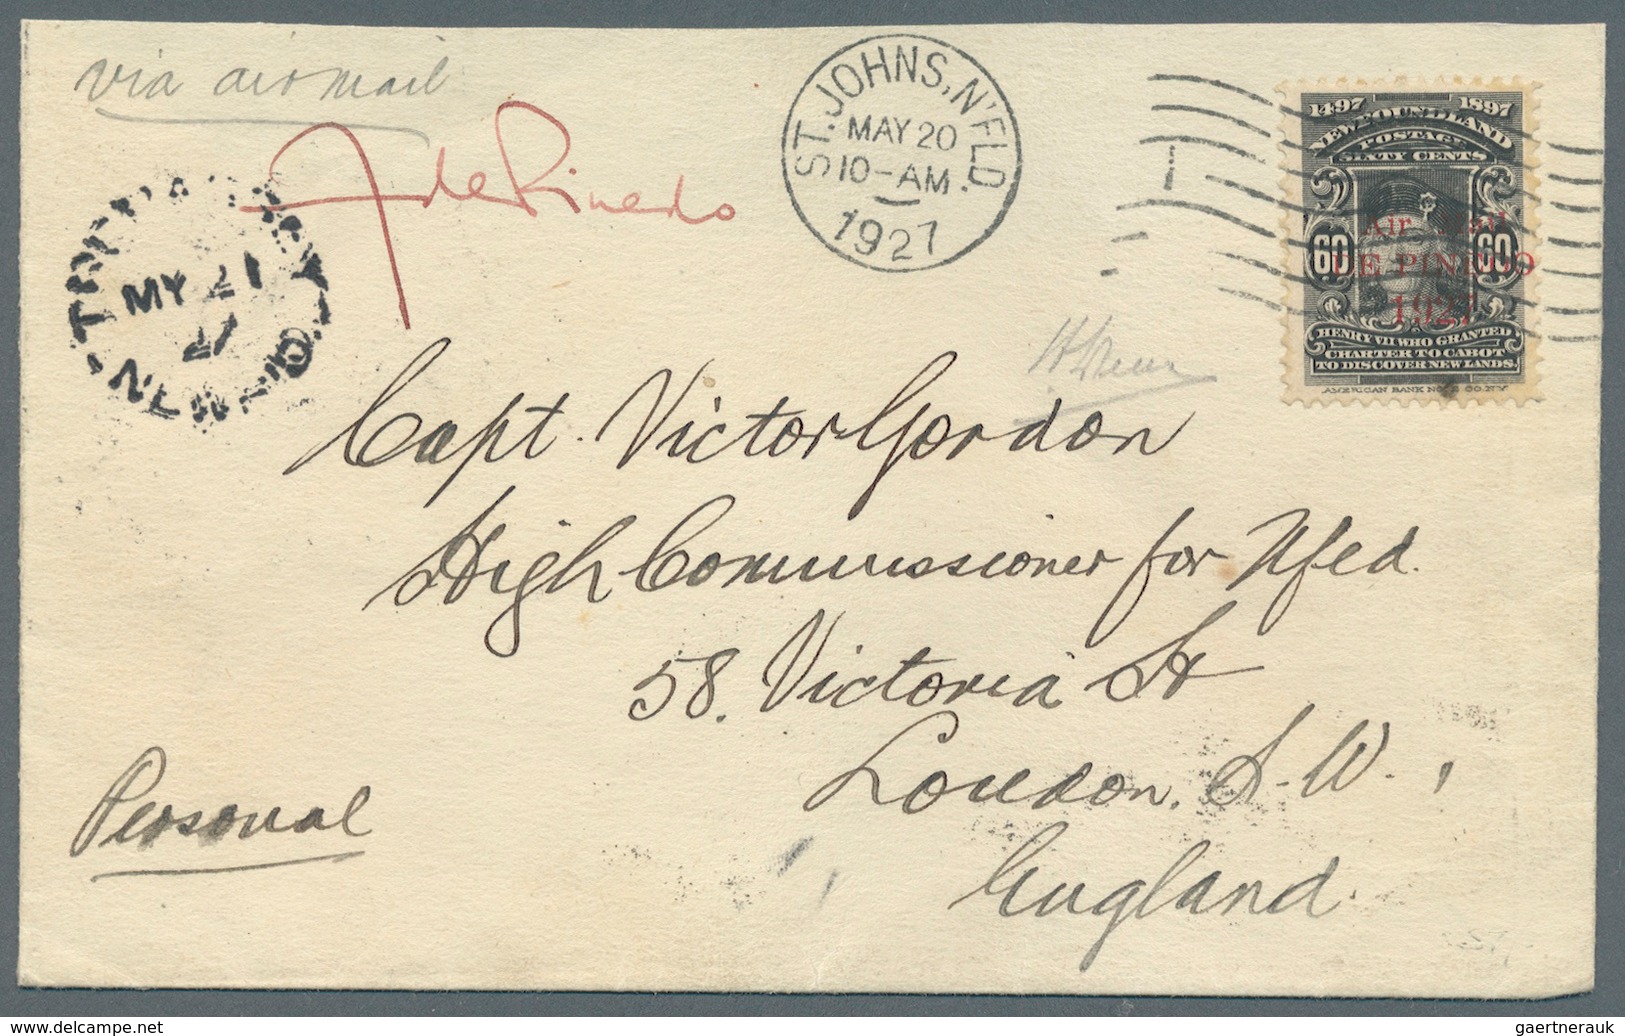 via air mail
F de Pinedo
ST. JOHNS, N'FLD.
MAY 20
10-AM.
1927
MY 21
27
1497 1897
NEWFOUNDLAND
POSTAGE
SIXTY CENTS
Air Mail
60 60
DE PINEDO
1927
HENRY VII WHO GRANTED
CHARTER TO CABOT
TO DISCOVER NEW LANDS.
AMERICAN BANK NOTE CO. N.Y.
Capt. Victor Gordon
High Commissioner for Nfld.
58. Victoria St
London. S.W.,
England.
Personal
gaertnerauk
© www.gaertner.eu.com